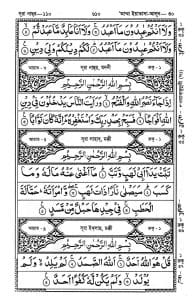 সূরা নাছর-১১০ ৬১০ 'আম্মা ইয়াতাসা-আলূন - ৩০
وَلَاۤ اَنْتُمْ عٰبِدُوْنَ مَاۤ اَعْبُدُ ۚ وَلَاۤ اَنَا عَابِدٌ مَّا عَبَدْتُّمْ ۙ
وَلَاۤ اَنْتُمْ عٰبِدُوْنَ مَاۤ اَعْبُدُ ؕ لَكُمْ دِيْنُكُمْ وَلِيَ دِيْنِ
আয়াত - ৩ সূরা নাছর, মদনী রুকু - ১
بِسْمِ اللّٰهِ الرَّحْمٰنِ الرَّحِيْمِ
وَرَاَيْتَ النَّاسَ يَدْخُلُوْنَ فِيْ دِيْنِ
فَسَبِّحْ بِحَمْدِ رَبِّكَ وَاسْتَغْفِرْهُ اِنَّهٗ كَانَ تَوَّابًا
আয়াত - ৫ সূরা লাহাব, মক্কী রুকু - ১
بِسْمِ اللّٰهِ الرَّحْمٰنِ الرَّحِيْمِ
تَبَّتْ يَدَاۤ اَبِيْ لَهَبٍ وَّتَبَّ مَاۤ اَغْنٰى عَنْهُ مَالُهٗ وَمَا
كَسَبَ سَيَصْلٰى نَارًا ذَاتَ لَهَبٍ وَّامْرَاَتُهٗ حَمَّالَةَ
الْحَطَبِ فِيْ جِيْدِهَا حَبْلٌ مِّنْ مَّسَدٍ
আয়াত - ৪ সূরা ইখলাছ, মক্কী রুকু - ১
بِسْمِ اللّٰهِ الرَّحْمٰنِ الرَّحِيْمِ
قُلْ هُوَ اللّٰهُ اَحَدٌ اَللّٰهُ الصَّمَدُ لَمْ يَلِدْ وَلَمْ
يُوْلَدْ وَلَمْ يَكُنْ لَّهٗ كُفُوًا اَحَدٌ